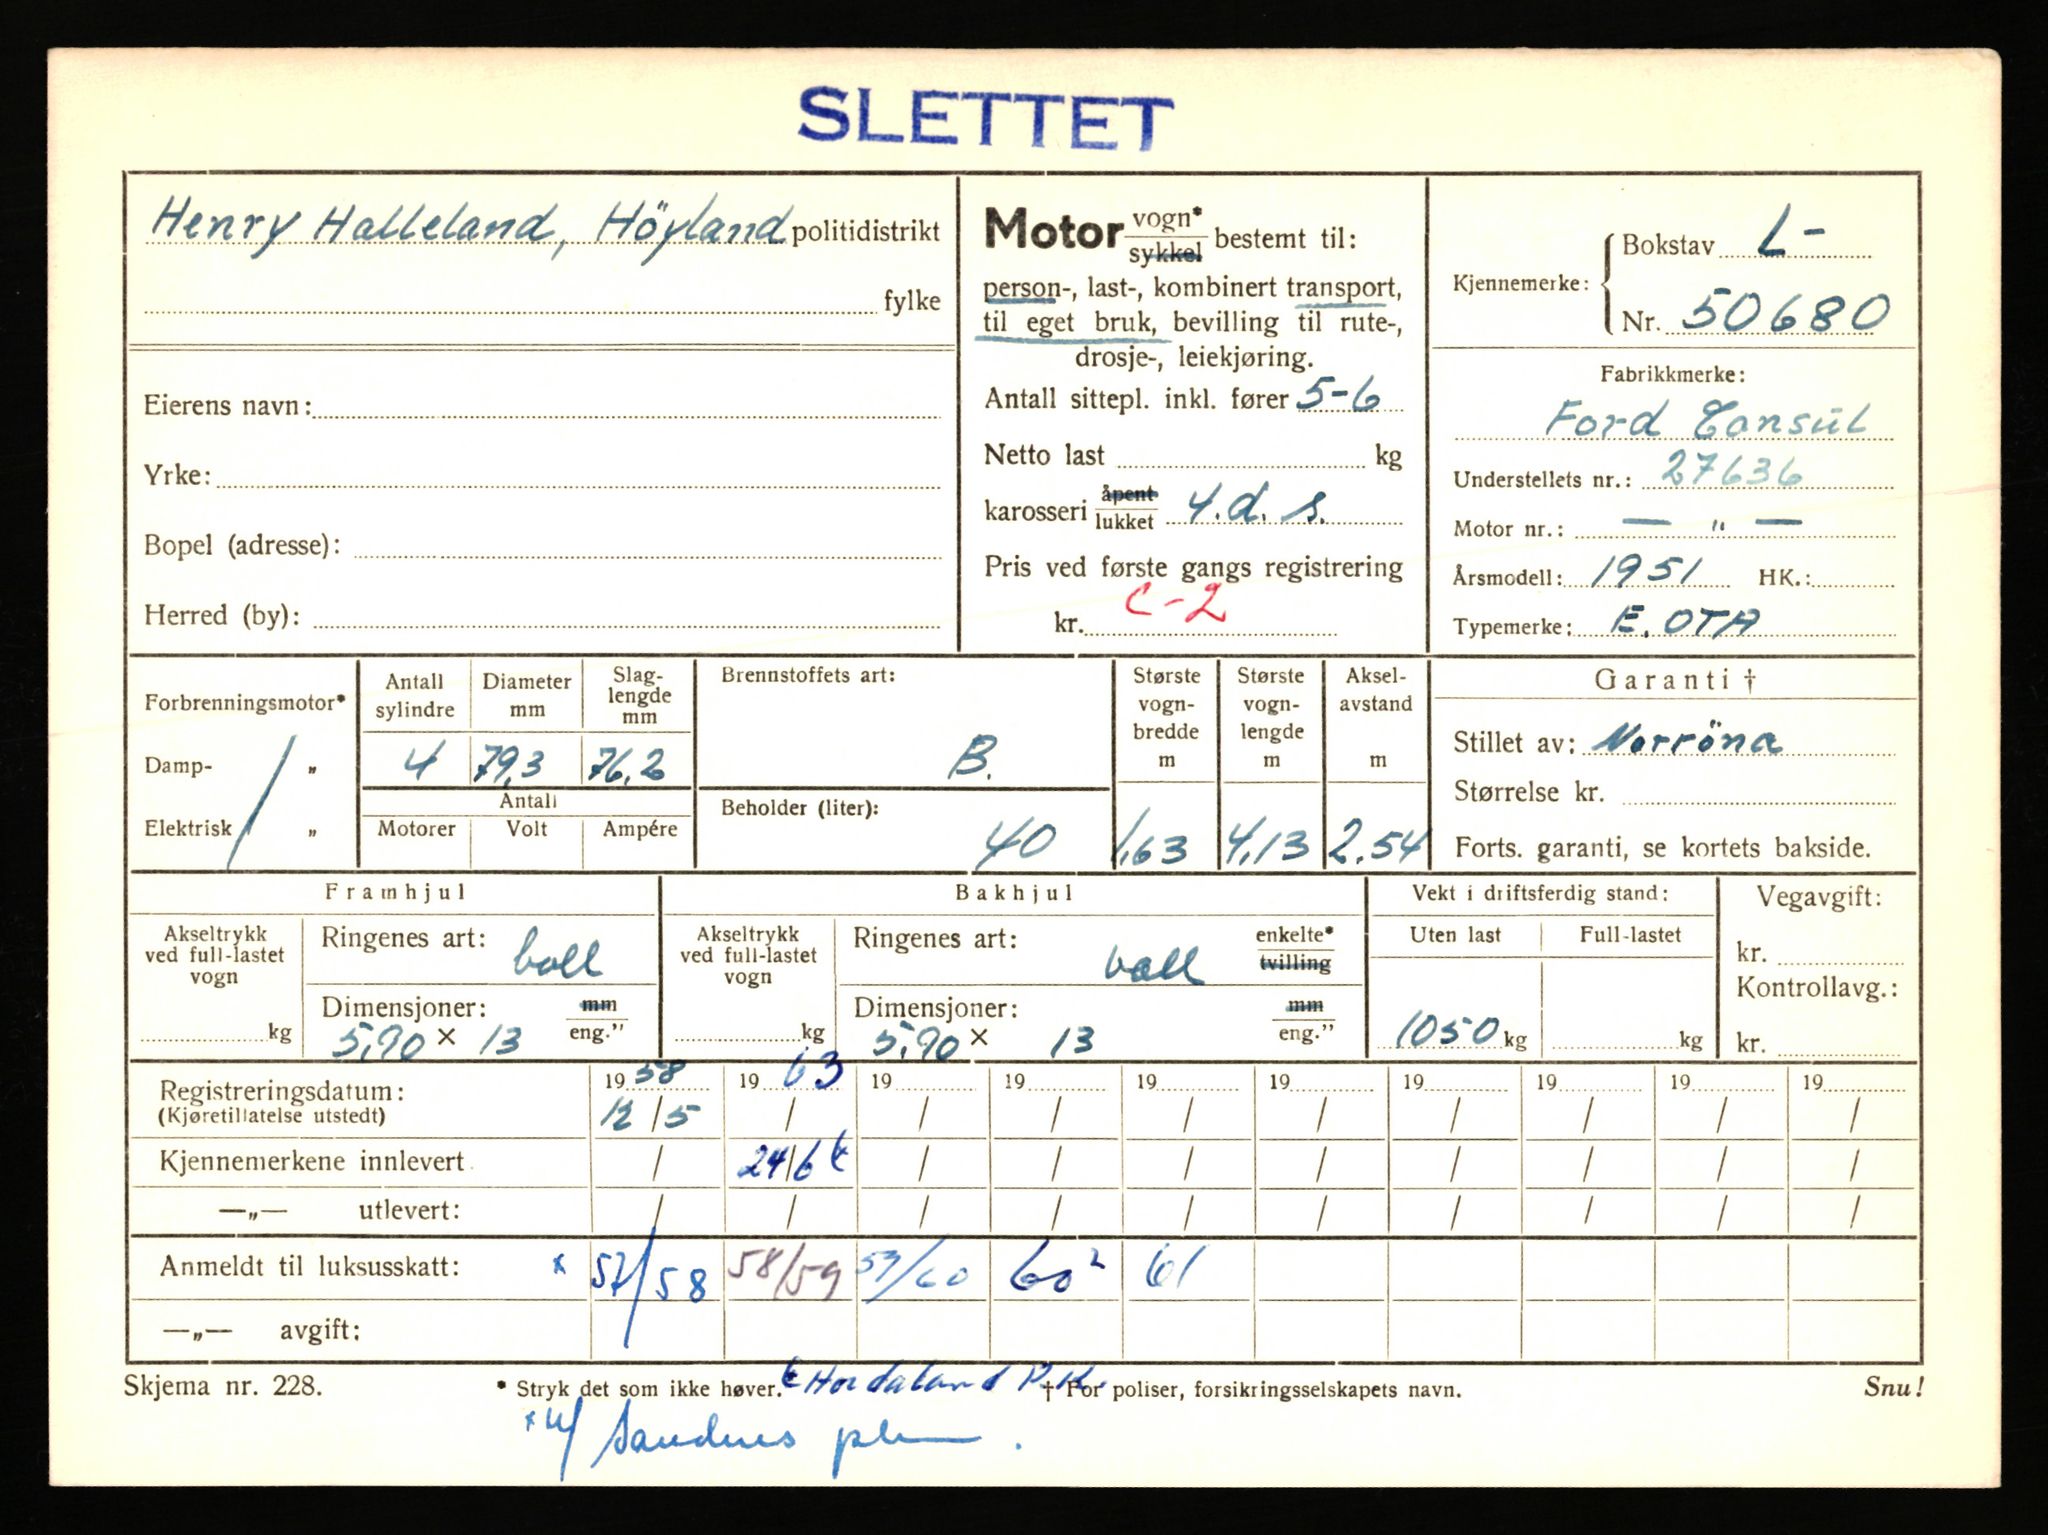 SLETTET
Henry Halleland, Höyland politidistrikt
fylke
Eierens navn:
Yrke:
Bopel (adresse):
Herred (by):
Motor vogn* sykkel bestemt til:
person-, last-, kombinert transport,
til eget bruk, bevilling til rute-,
drosje-, leiekjøring.
Antall sittepl. inkl. fører 5-6
Netto last kg
karosseri åpent lukket 4.d.s.
Pris ved første gangs registrering
kr. C-2
Kjennemerke: Bokstav L-
Nr. 50680
Fabrikkmerke:
Ford Consul
Understellets nr.: 27636
Motor nr.: — " —
Årsmodell: 1951 HK.:
Typemerke: E.OTA
Forbrenningsmotor*
Damp- "
Elektrisk "
Antall sylindre
Diameter mm
Slag-lengde mm
4 79,3 76,2
Antall
Motorer Volt Ampére
Brennstoffets art:
B.
Beholder (liter):
40
Største vogn-bredde m
1,63
Største vogn-lengde m
4,13
Aksel-avstand m
2.54
Garanti †
Stillet av: Norröna
Størrelse kr.
Forts. garanti, se kortets bakside.
Framhjul
Akseltrykk ved full-lastet vogn
kg
Ringenes art: ball
Dimensjoner: mm eng."
5,90 × 13
Bakhjul
Akseltrykk ved full-lastet vogn
kg
Ringenes art: ball enkelte* tvilling
Dimensjoner: mm eng."
5,90 × 13
Vekt i driftsferdig stand:
Uten last Full-lastet
1050 kg kg
Vegavgift:
kr.
Kontrollavg.:
kr.
Registreringsdatum: 19 58 19 63 19 19 19 19 19 19 19 19
(Kjøretillatelse utstedt) 12/5 / / / / / / / / /
Kjennemerkene innlevert / 24/6 / / / / / / / /
—„— utlevert: / / / / / / / / / /
Anmeldt til luksusskatt: × 57/58 58/59 59/60 60² 61
—„— avgift:
Skjema nr. 228. * Stryk det som ikke høver. Hordaland P.K. † For poliser, forsikringsselskapets navn. Snu!
Sandnes